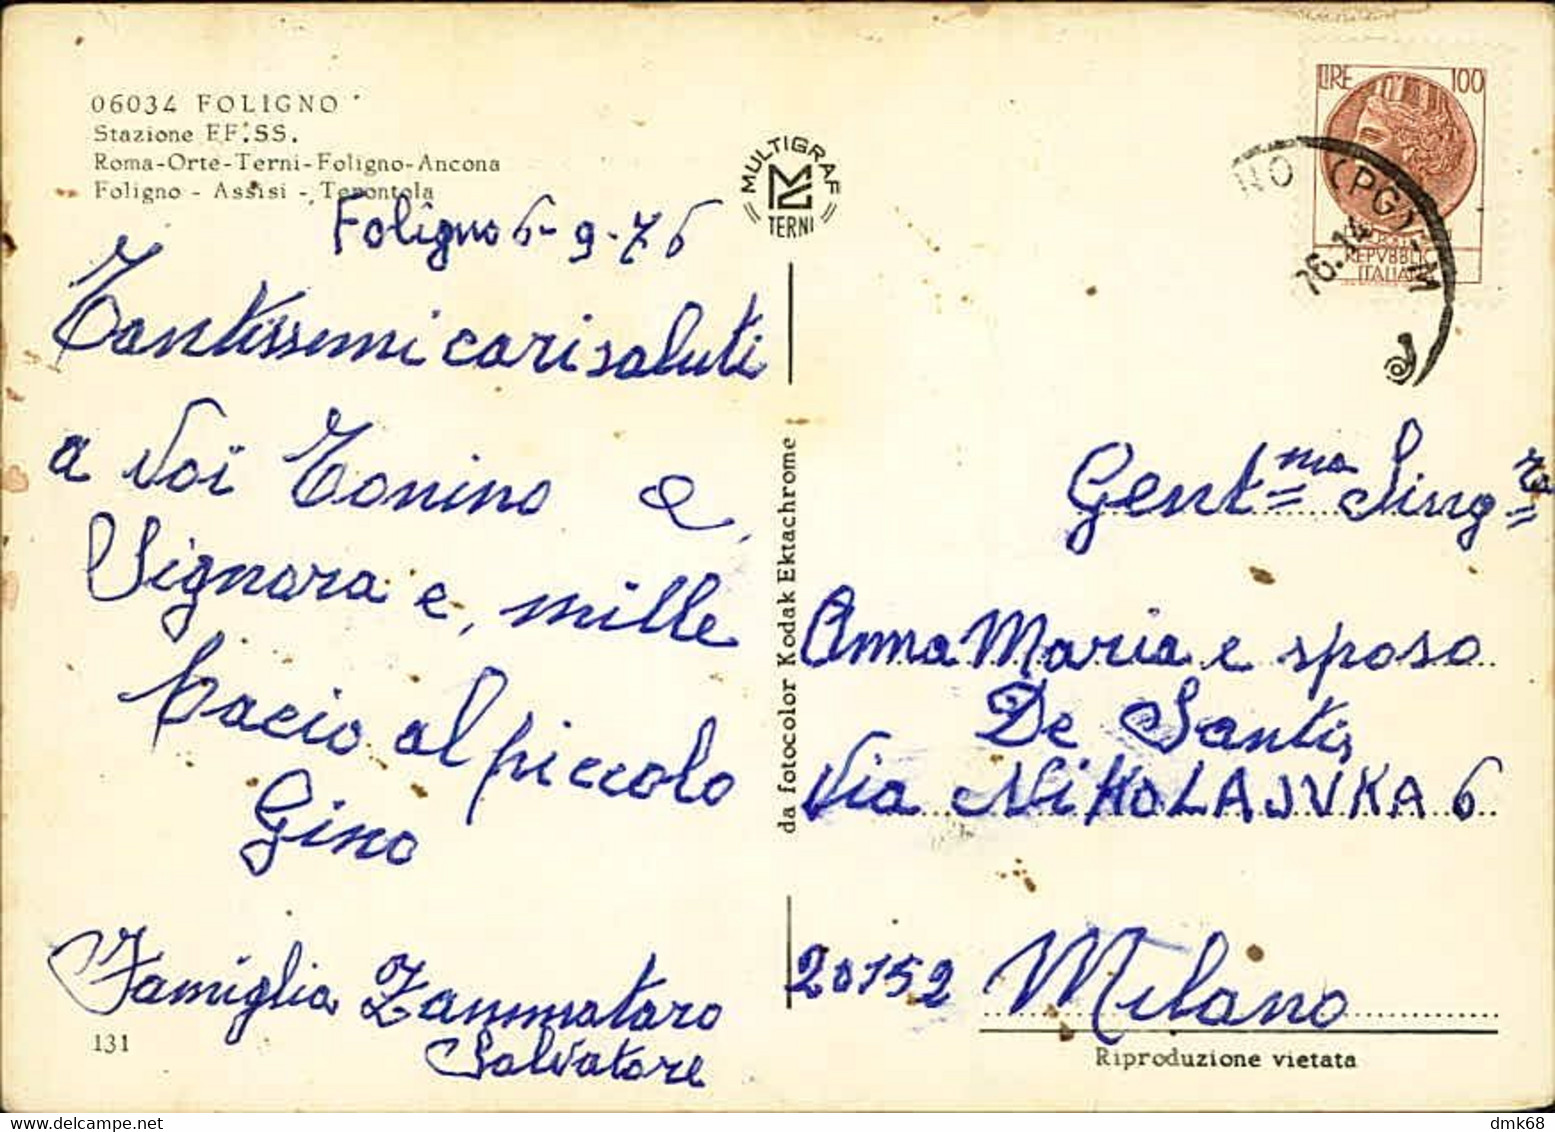 06034 FOLIGNO
Stazione FF.SS.
Roma-Orte-Terni-Foligno-Ancona
Foligno - Assisi - Terontola
Foligno 6-9-76
Tantissemi cari saluti
a Voi Tonino e,
Signora e, mille
bacio al piccolo
Gino
Famiglia Zammataro
Salvatore
131
MULTIGRAF
TERNI
da fotocolor Kodak Ektachrome
LIRE 100
REPVBBLIC
ITALIANA
NO (PG)-M
76.14
Gent=ma Sing=ra
Anna Maria e sposo
De Santis
Via NiKOLAJVKA 6
20152 Milano
Riproduzione vietata
dmk68